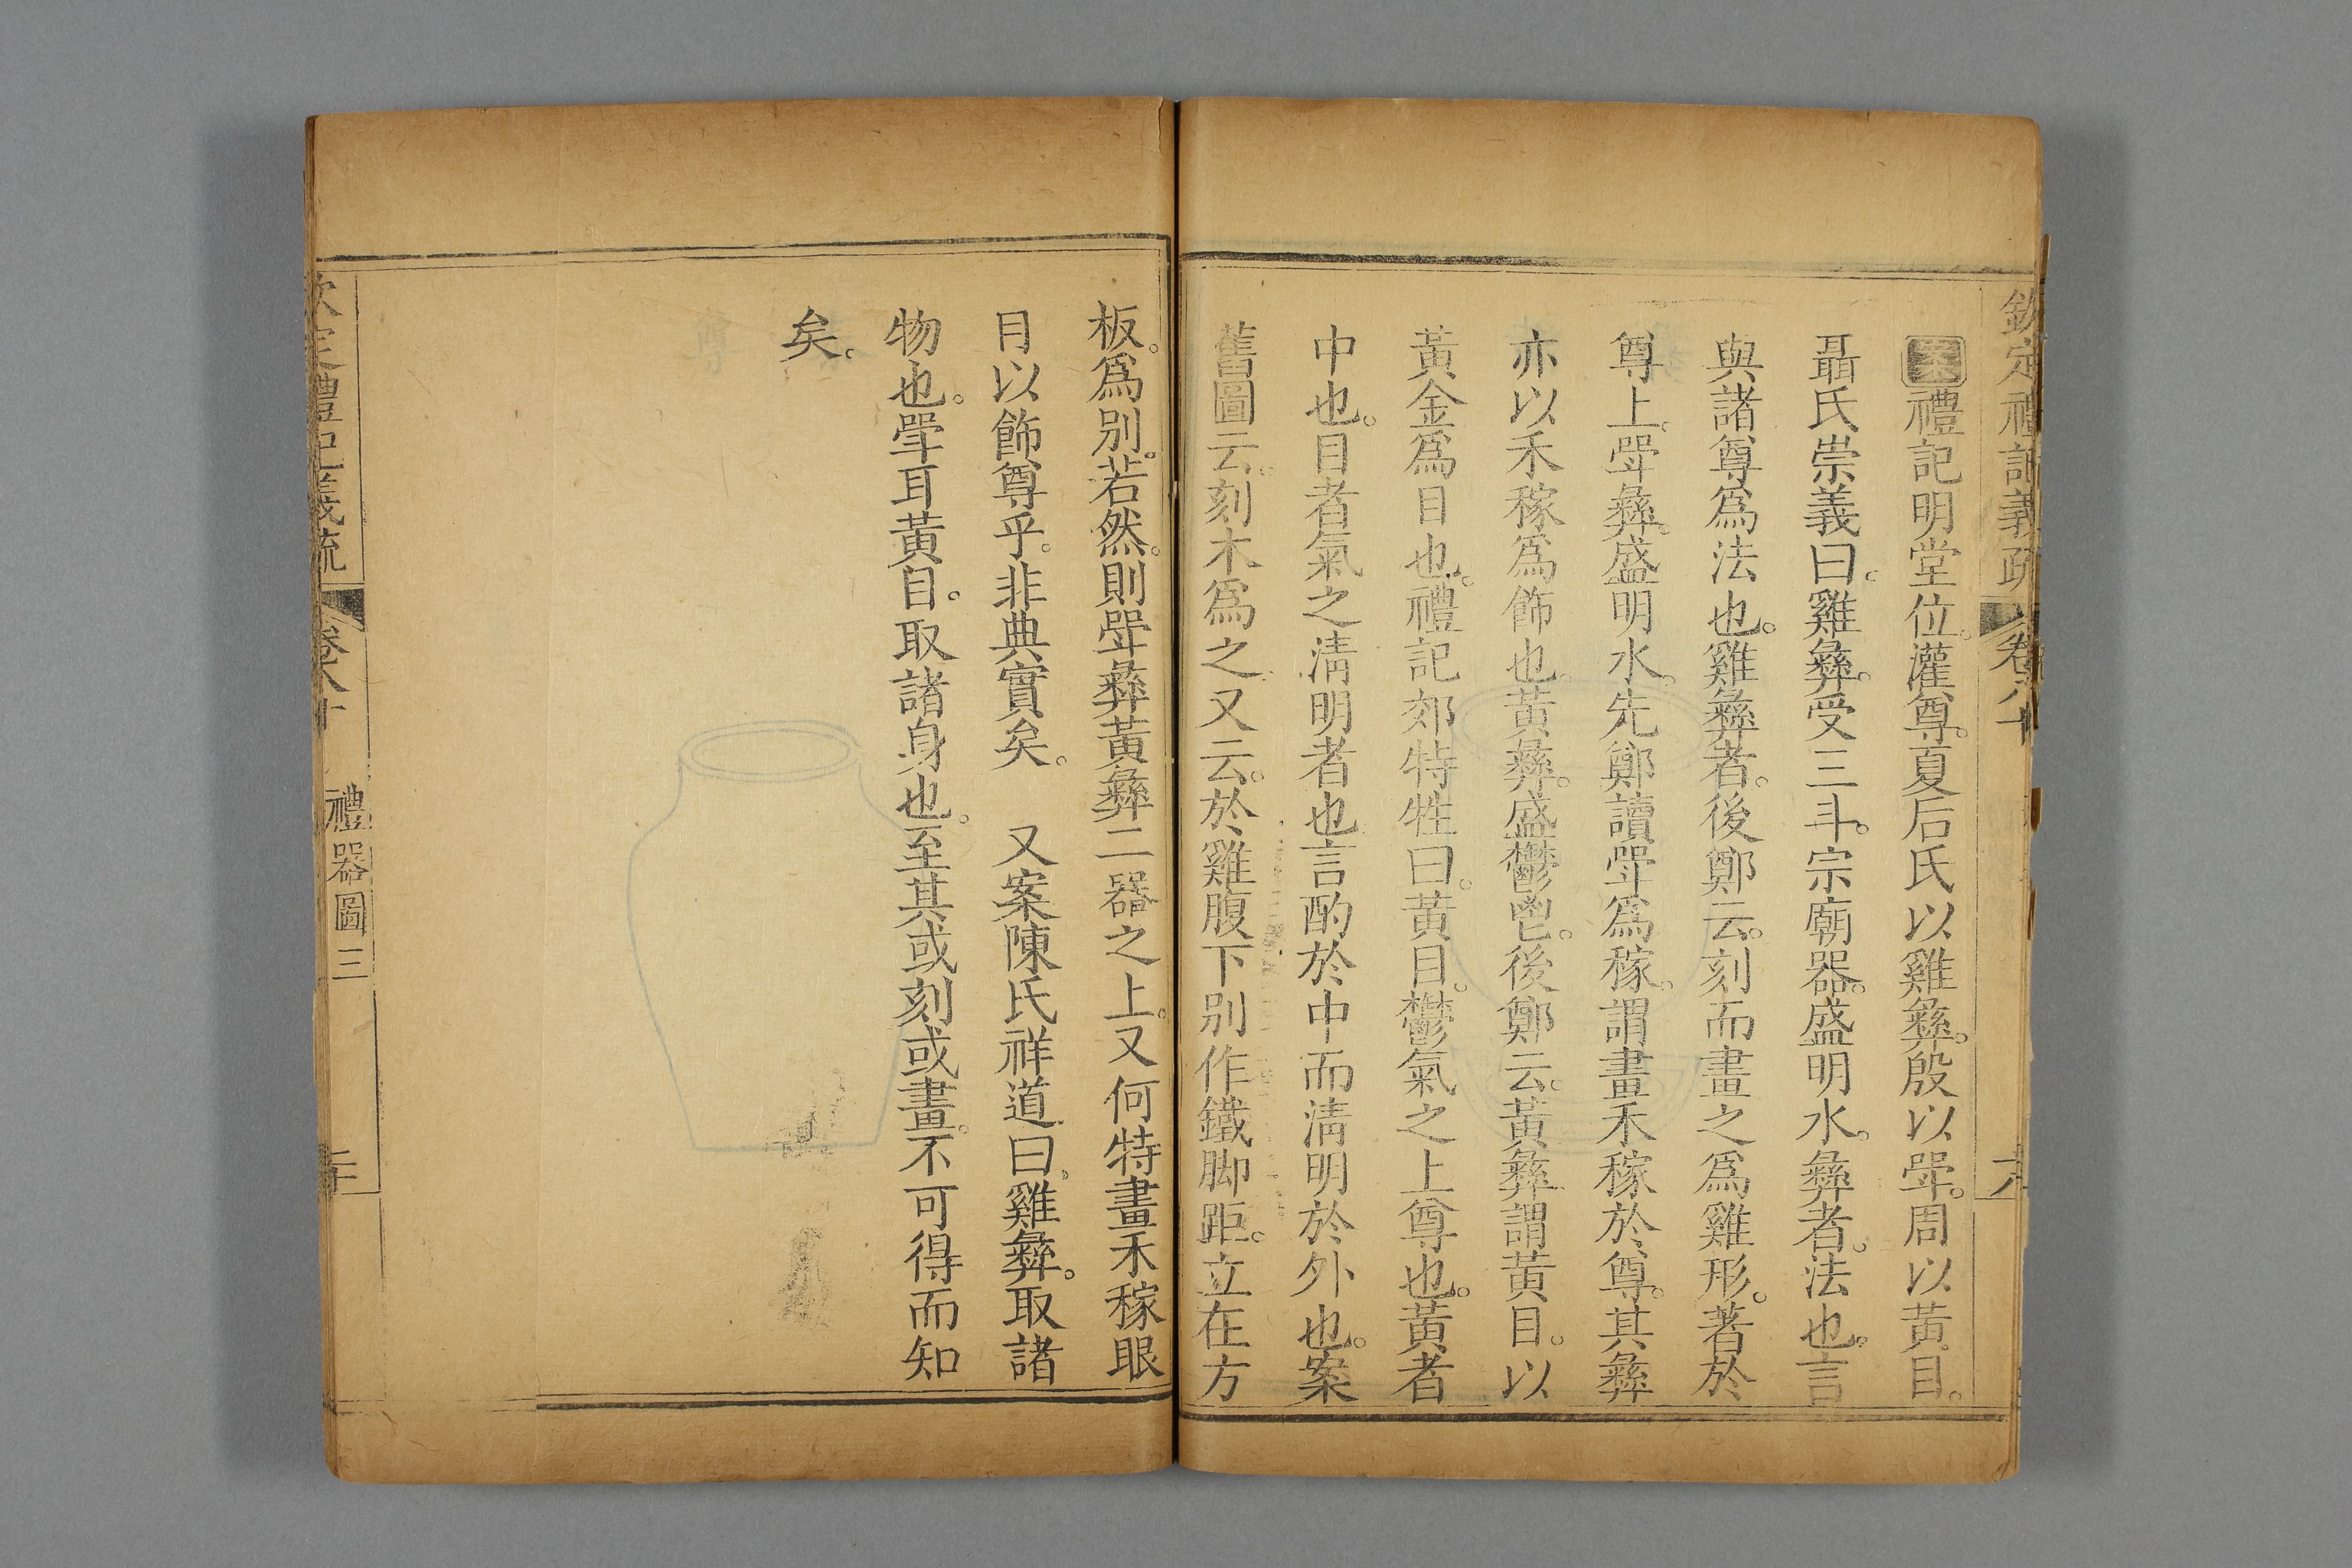 欽定禮記義疏 卷八十
案禮記明堂位。灌尊。夏后氏以雞彝。殷以斝。周以黃目。
聶氏崇義曰。雞彝。受三斗。宗廟器。盛明水。彝者。法也。言
與諸尊爲法也。雞彝者。後鄭云。刻而畫之爲雞形。著於
尊上。斝彝。盛明水。先鄭讀斝爲稼。謂畫禾稼於尊。其彝
亦以禾稼爲飾也。黃彝。盛鬱鬯。後鄭云。黃彝謂黃目。以
黃金爲目也。禮記郊特牲曰。黃目。鬱氣之上尊也。黃者
中也。目者氣之淸明者也言酌於中而淸明於外也。案
舊圖云。刻木爲之。又云。於雞腹下别作鐵脚距。立在方
板。爲别。若然。則斝彝黃彝二器之上。又何特畫禾稼眼
目以飾尊乎。非典實矣。 又案陳氏祥道曰。雞彝。取諸
物也。斝耳黃目。取諸身也。至其或刻或畫。不可得而知
矣。
欽定禮記義疏 卷八十 禮器圖三